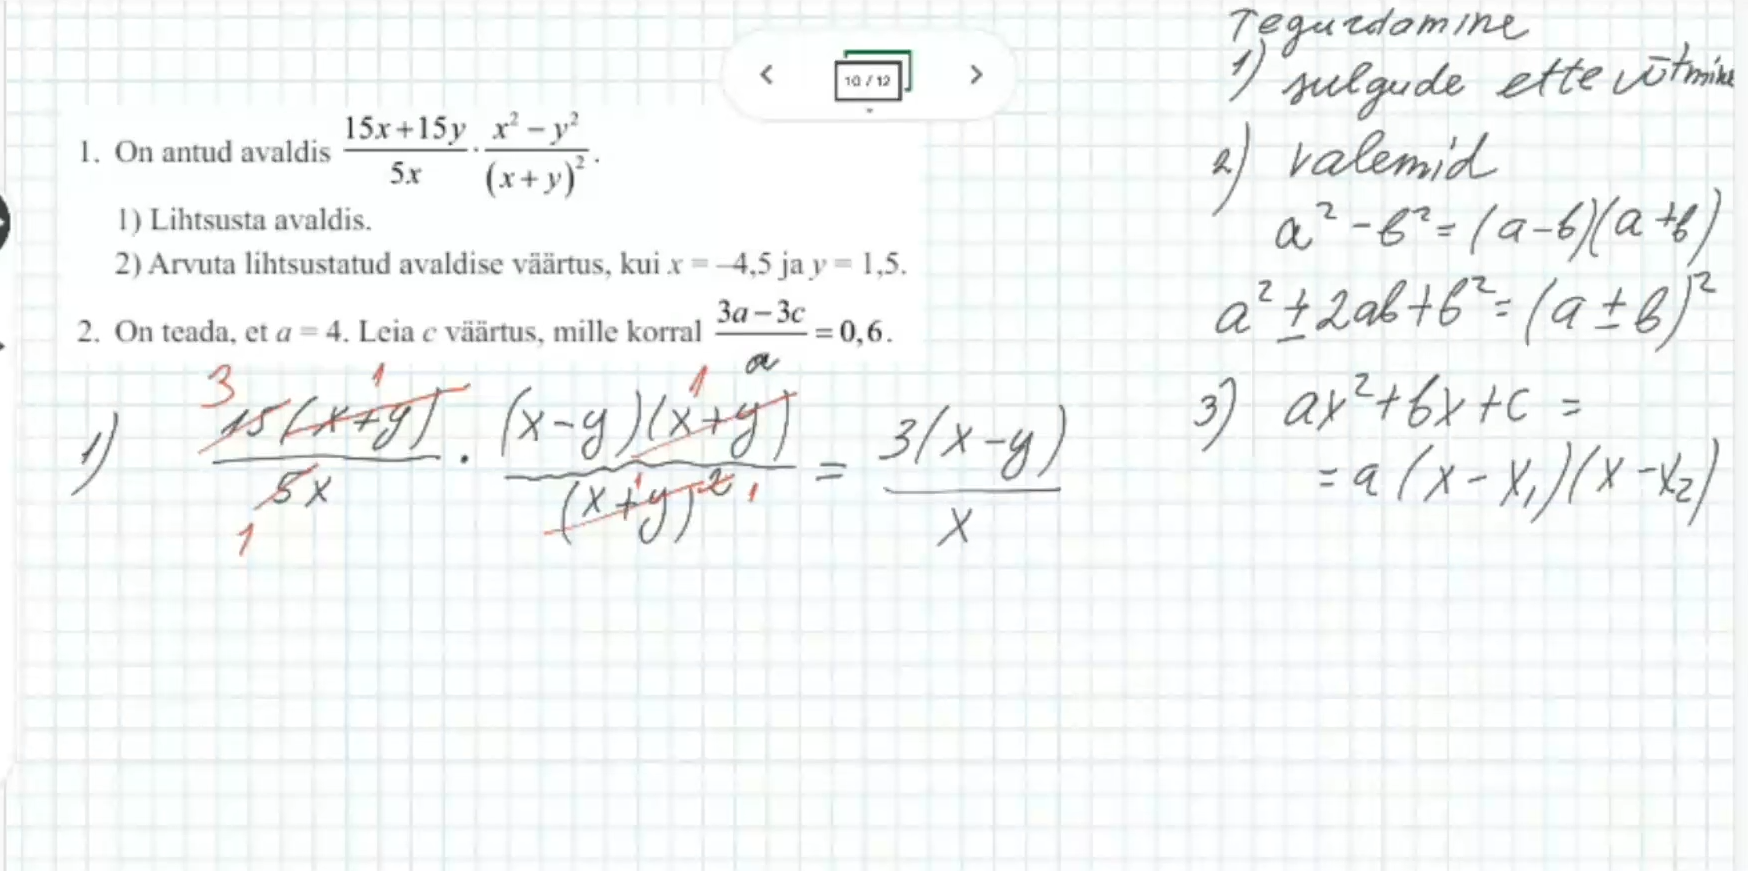 10 / 12
1. On antud avaldis (15x+15y)/(5x) · (x² – y²)/(x + y)².
1) Lihtsusta avaldis.
2) Arvuta lihtsustatud avaldise väärtus, kui x = –4,5 ja y = 1,5.
2. On teada, et a = 4. Leia c väärtus, mille korral (3a – 3c)/a = 0,6.
1) 15(x+y)/5x · (x-y)(x+y)/(x+y)² = 3(x-y)/x
3 1 1
1 1 1
Tegurdamine
1) sulgude ette võtmine
2) valemid
a² - b² = (a-b)(a+b)
a² ± 2ab + b² = (a ± b)²
3) ax² + bx + c =
= a (x - x₁)(x - x₂)